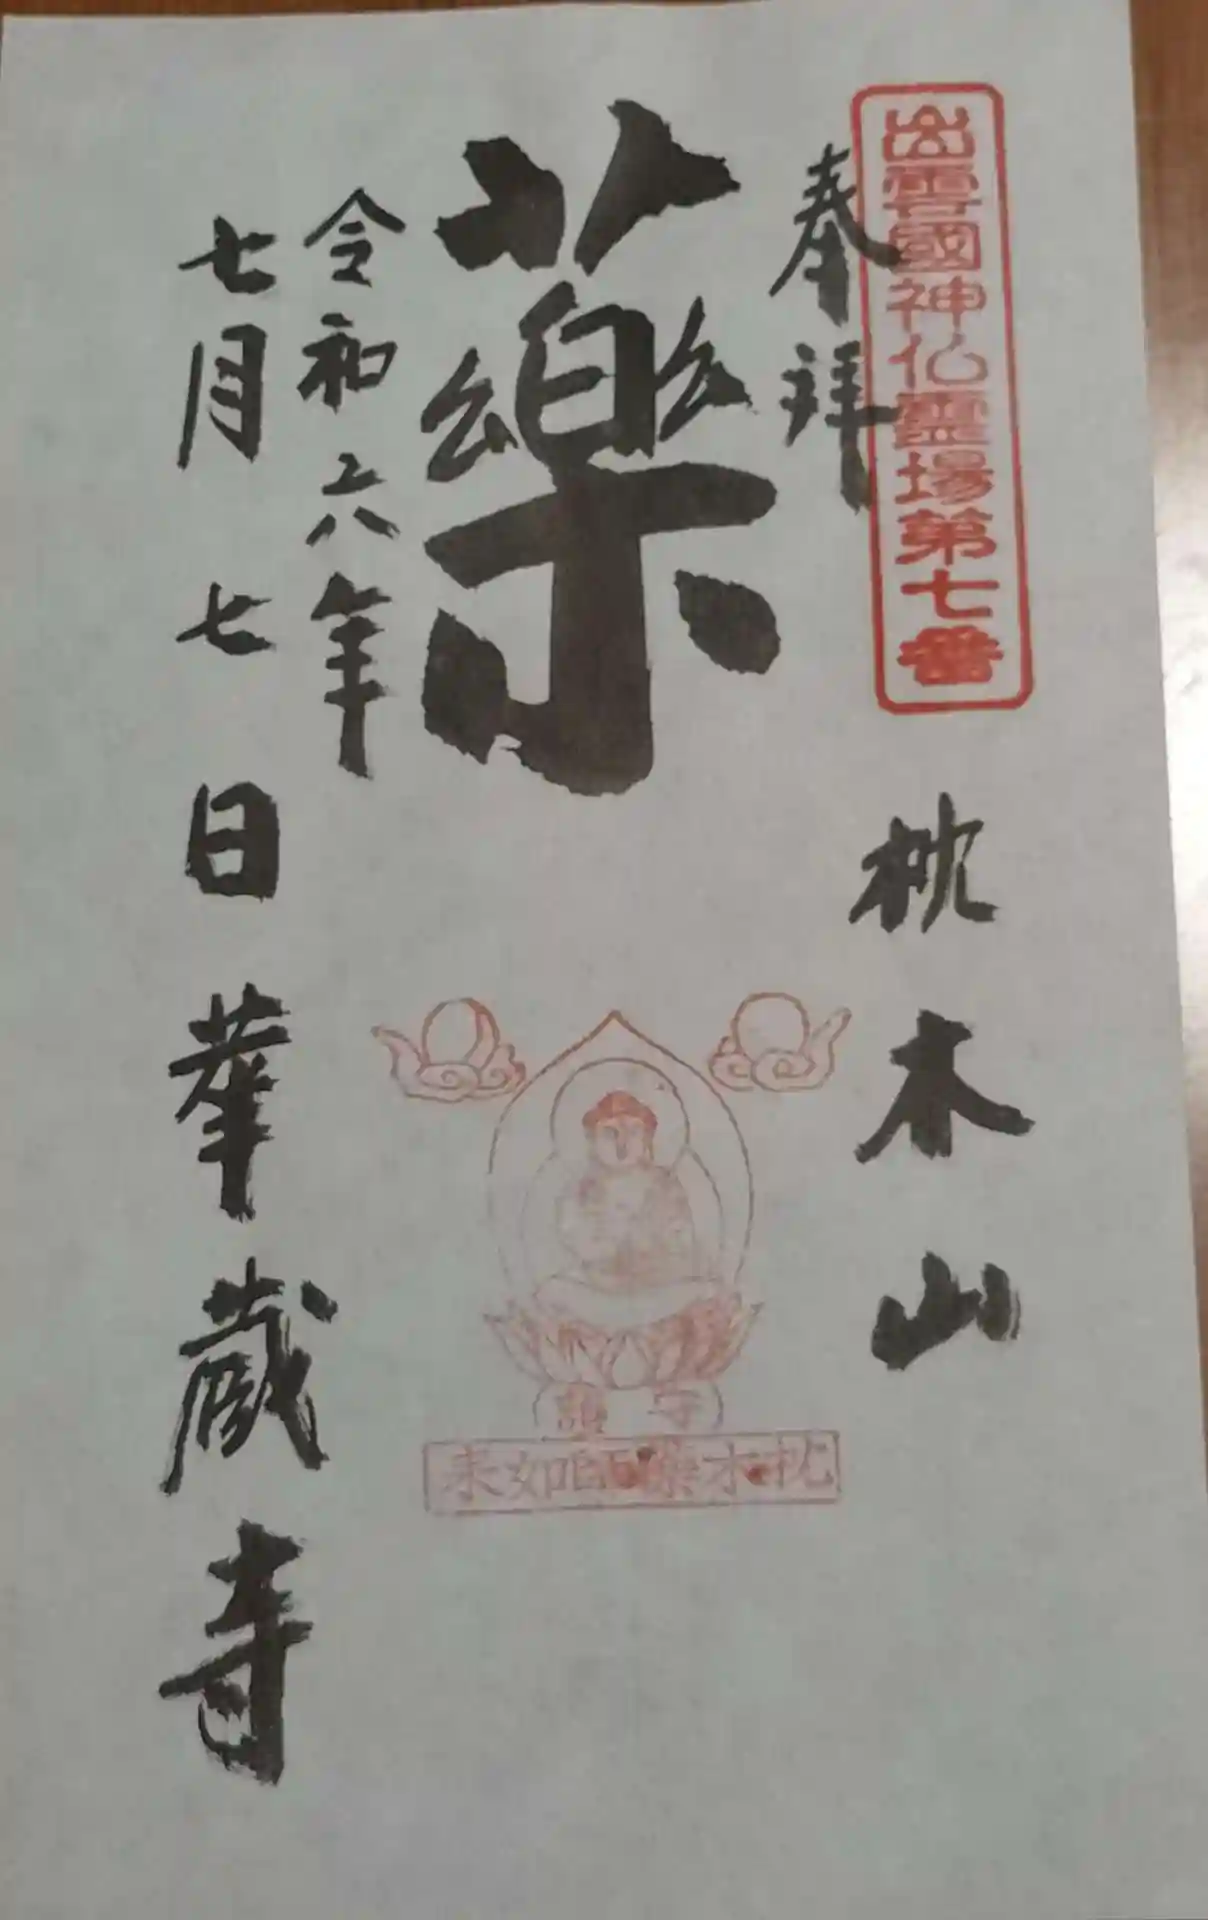 出雲國神仏霊場第七番
奉拝
枕木山
薬
守護
枕木薬師如来
令和六年
七月七日
華蔵寺